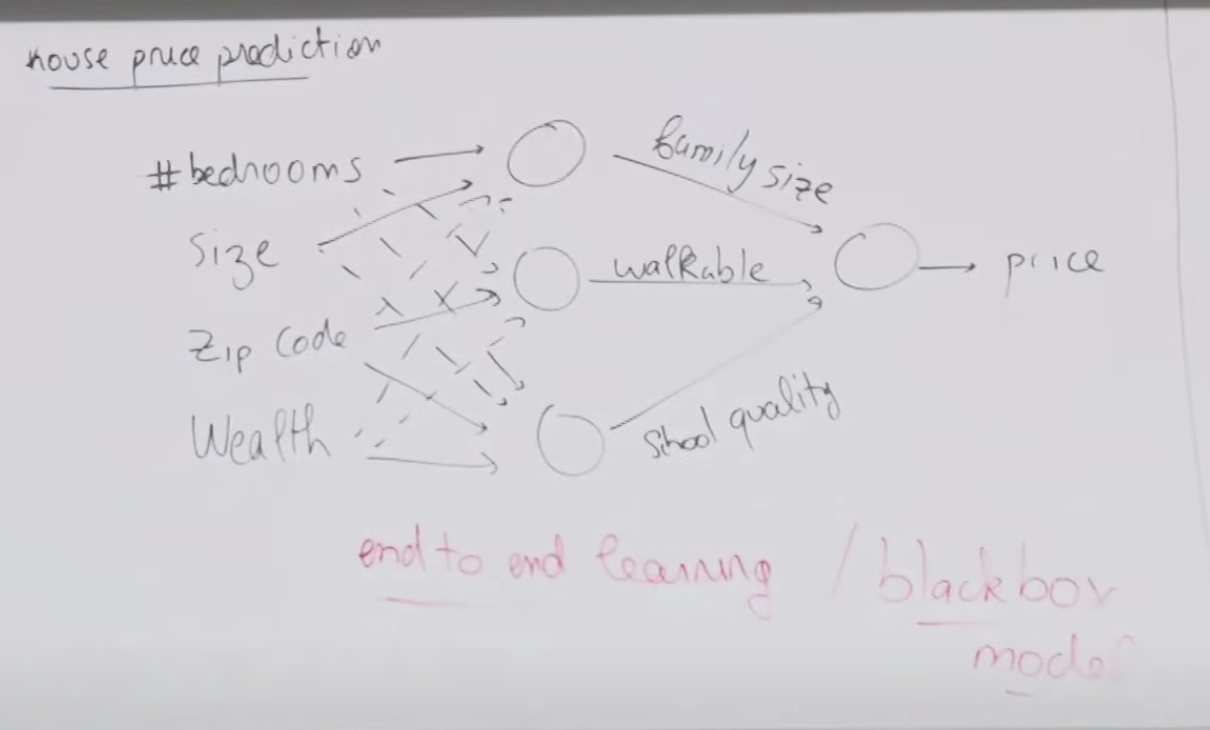 house price prediction
#bedrooms
family size
size
walkable
price
Zip Code
Wealth
school quality
end to end learning / black box
model